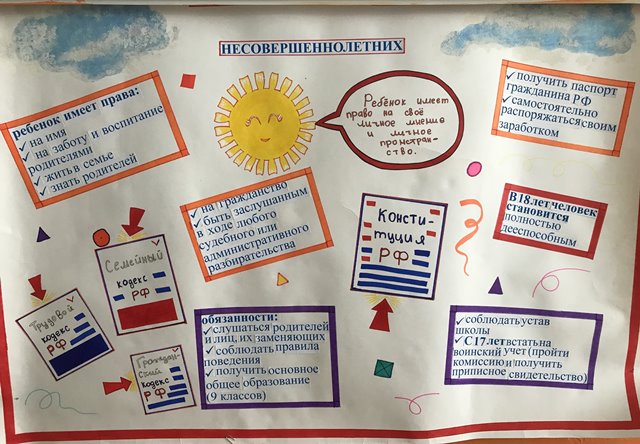 НЕСОВЕРШЕННОЛЕТНИХ
ребенок имеет права:
✓ на имя
✓ на заботу и воспитание
родителями
✓ жить в семье
✓ знать родителей
Ребёнок имеет
право на своё
личное мнение
и личное
простран-
ство.
✓ получить паспорт
гражданина РФ
✓ самостоятельно
распоряжаться своим
заработком
✓ на гражданство
✓ быть заслушанным
в ходе любого
судебного или
административного
разбирательства
Консти-
туция
РФ
В 18 лет человек
становится
полностью
дееспособным
Семейный
кодекс
РФ
Трудовой
кодекс
РФ
Граждан-
ский
кодекс
РФ
обязанности:
✓ слушаться родителей
и лиц, их заменяющих
✓ соблюдать правила
поведения
✓ получить основное
общее образование
(9 классов)
✓ соблюдать устав
школы
✓ С 17 лет встать на
воинский учет (пройти
комиссию и получить
приписное свидетельство)